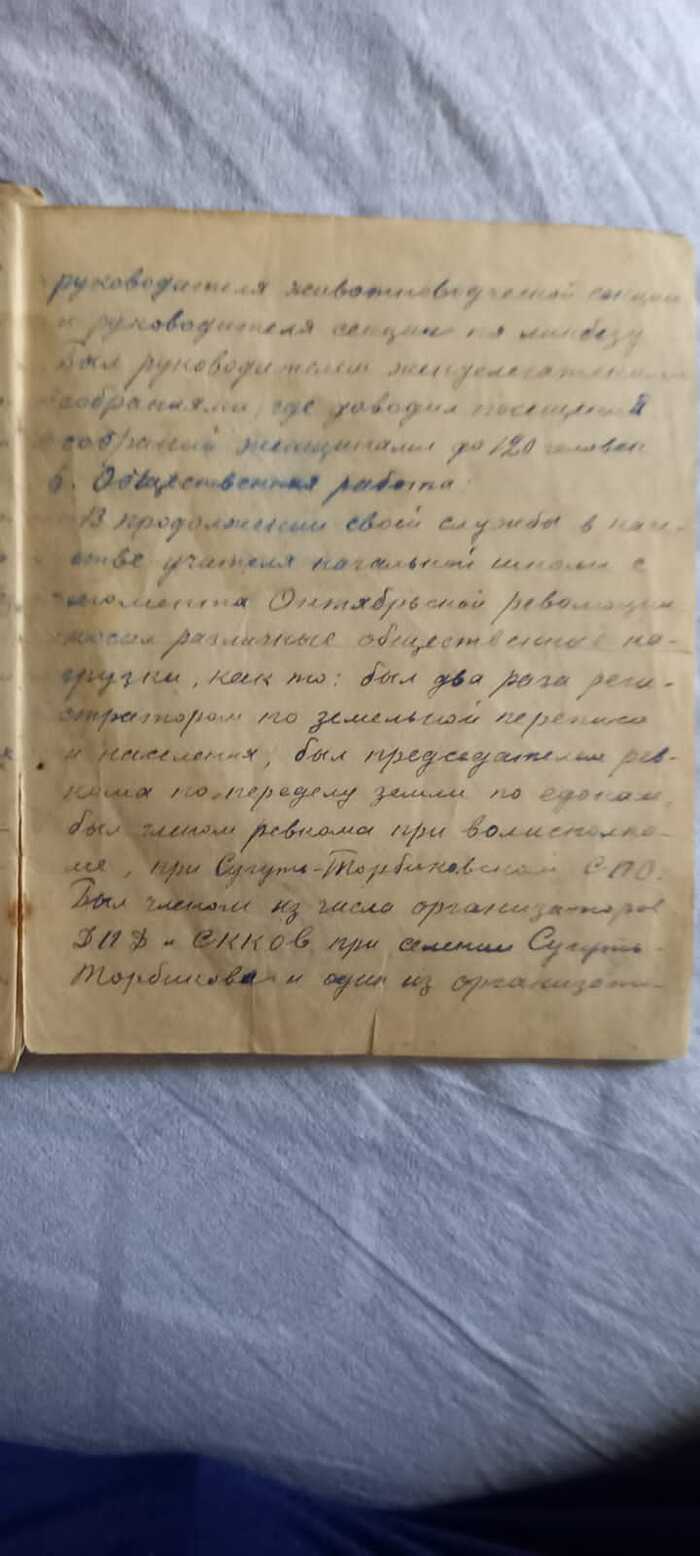 руководителя животноводческой секции
и руководителя секции по ликбезу
Был руководителем женделегатскими
собраниями, где доводил посещений
собраний женщинами до 120 человек
6. Общественная работа:
В продолжении своей службы в каче-
стве учителя начальной школы с
момента Октябрьской революции
носил различные общественные на-
грузки, как то: был два раза реги-
стратором по земельной переписи
и населения, был председателем рев-
кома по переделу земли по едокам,
был членом ревкома при волисполко-
ме, при Сугуть-Торбиковском СПО.
Был членом из числа организаторов
ДПД и СККОВ при селении Сугуть-
Торбиково и один из организато-